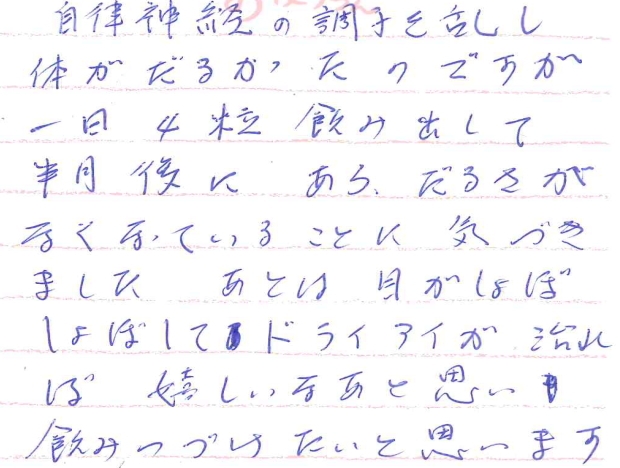 自律神経の調子を乱し
体がだるかったのですが
一日 4粒 飲み出して
半月後に あら、だるさが
なくなっていることに 気づき
ました あとは 目がしょぼ
しょぼして ドライアイが 治れ
ば 嬉しいなあと思い
飲みつづけたいと思います